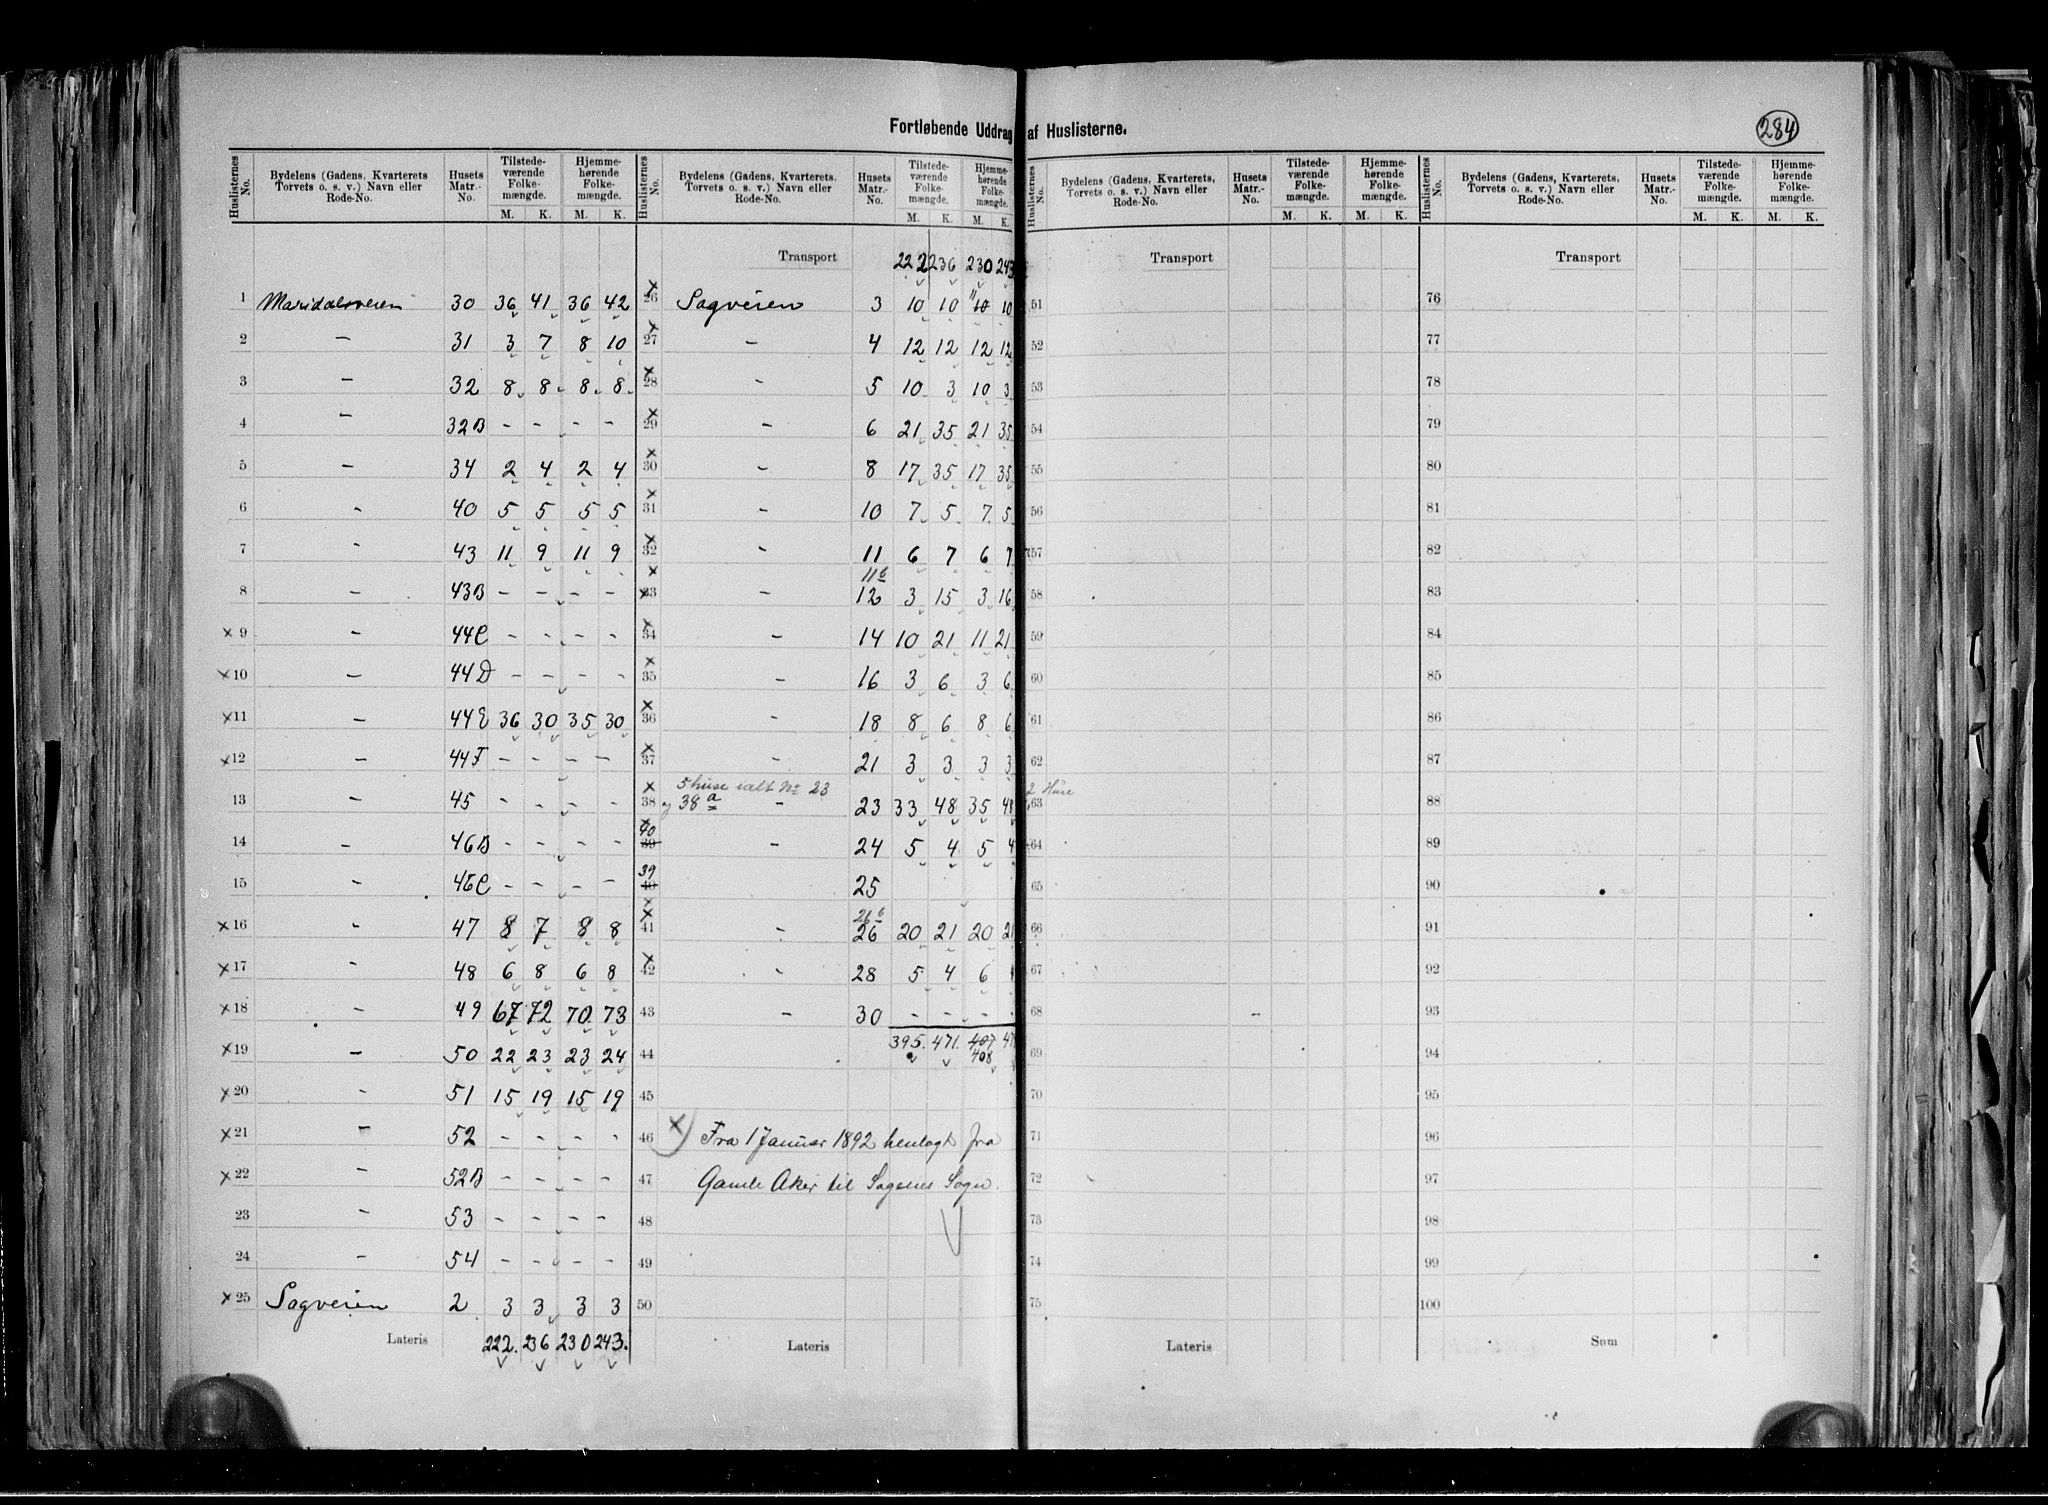 Fortløbende Uddrag af Huslisterne.
284
Huslisternes No. | Bydelens (Gadens, Kvarterets Torvets o. s. v.) Navn eller Rode-No. | Husets Matr.-No. | Tilstedeværende Folkemængde. M. K. | Hjemmehørende Folkemængde. M. K.
1 Maridalsveien 30 36 41 36 42
2 — 31 3 7 8 10
3 — 32 8 8 8 8
4 — 32B - - - -
5 — 34 2 4 2 4
6 - 40 5 5 5 5
7 - 43 11 9 11 9
8 — 43B - - - -
× 9 — 44C - - - -
×10 — 44D - - - -
×11 — 44E 36 30 35 30
×12 — 44F - - - -
13 — 45 - - - -
14 — 46B - - - -
15 - 46C - - - -
×16 - 47 8 7 8 8
×17 - 48 6 8 6 8
×18 — 49 67 72 70 73
×19 — 50 22 23 23 24
×20 - 51 15 19 15 19
×21 — 52 - - - -
×22 — 52B - - - -
23 - 53 - - - -
24 - 54 - - - -
×25 Sagveien 2 3 3 3 3
Lateris 222. 236 230 243.
Huslisternes No. | Bydelens (Gadens, Kvarterets, Torvets o. s. v.) Navn eller Rode-No. | Husets Matr.-No. | Tilstedeværende Folkemængde. M. K. | Hjemmehørende Folkemængde. M. K.
Transport 222 236 230 243
× 26 Sagveien 3 10 10 " 10 10
× 27 — 4 12 12 12 12
× 28 - 5 10 3 10 3
× 29 — 6 21 35 21 35
× 30 - 8 17 35 17 35
× 31 — 10 7 5 7 5
× 32 - 11 6 7 6 7
× 11b
× 33 — 12 3 15 3 16
× 34 — 14 10 21 11 21
× 35 — 16 3 6 3 6
× 36 - 18 8 6 8 6
× 37 - 21 3 3 3 3
5 huse ialt No 23
× 38 og 38a - 23 33 48 35 48
2 Huse
× 40 39 - 24 5 4 5 4
39 40 25
× 26b
× 41 - 26 20 21 20 21
× 42 - 28 5 4 6
43 — 30 - - - -
44 395. 471. 407
408
45
46 ×) Fra 1 Januar 1892 henlagt fra
47 Gamle Aker til Sagenes Sogn.
48
49
50
Lateris
Huslisternes No. | Bydelens (Gadens, Kvarterets, Torvets o. s. v.) Navn eller Rode-No. | Husets Matr.-No. | Tilstedeværende Folkemængde. M. K. | Hjemmehørende Folkemængde. M. K.
Transport
51
52
53
54
55
56
57
58
59
60
61
62
63
64
65
66
67
68 -
69
70
71
72
73
74
75
Lateris
Huslisternes No. | Bydelens (Gadens, Kvarterets, Torvets o. s. v.) Navn eller Rode-No. | Husets Matr.-No. | Tilstedeværende Folkemængde. M. K. | Hjemmehørende Folkemængde. M. K.
Transport
76
77
78
79
80
81
82
83
84
85
86
87
88
89
90
91
92
93
94
95
96
97
98
99
100
Sum